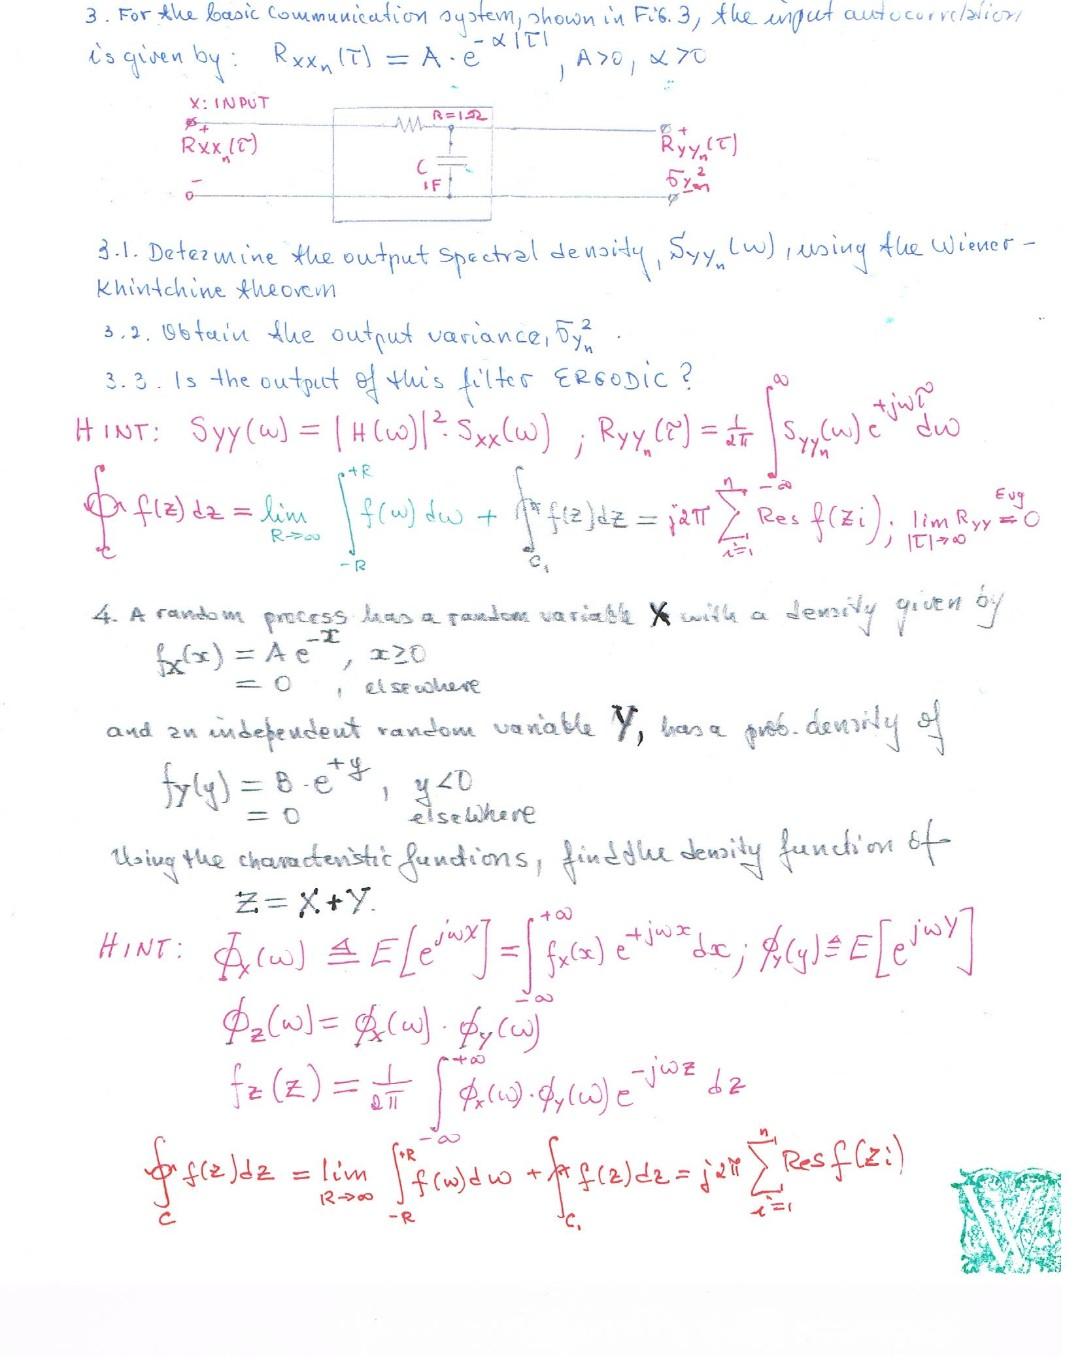 3. For the basic communication system, shown in FiG. 3, the input autocorrelation
is given by: Rxxₙ(τ) = A·e^(-α|τ|), A>0, α>0
X: INPUT
R=1Ω
+ +
Rxxₙ(τ) Ryyₙ(τ)
C
1F
σyₙ²
- -
3.1. Determine the output spectral density, Syyₙ(ω), using the Wiener-
Khintchine theorem
3.2. Obtain the output variance, σyₙ².
3.3. Is the output of this filter ERGODIC?
HINT: Syy(ω) = |H(ω)|²·Sxx(ω) ; Ryyₙ(τ) = 1/2π ∫_{-∞}^{∞} Syyₙ(ω) e^{+jωτ} dω
∮_C f(z)dz = lim_{R→∞} ∫_{-R}^{+R} f(ω)dω + ∫_{C₁} f(z)dz = j2π Σ_{i=1}^{n} Res f(zi); lim_{|τ|→∞} Ryy =^{Eug} 0
4. A random process has a random variable X with a density given by
fx(x) = A e^{-x}, x≥0
= 0 , elsewhere
and an independent random variable Y, has a prob. density of
fy(y) = B·e^{+y}, y<0
= 0 elsewhere
Using the characteristic functions, find the density function of
Z = X+Y.
HINT: Φx(ω) ≜ E[e^{jωX}] = ∫_{-∞}^{+∞} fx(x) e^{+jωx} dx; φy(y) ≜ E[e^{jωY}]
φz(ω) = φx(ω)·φy(ω)
fz(z) = 1/2π ∫_{-∞}^{+∞} φx(ω)·φy(ω) e^{-jωz} dz
∮_C f(z)dz = lim_{R→∞} ∫_{-R}^{+R} f(ω)dω + ∫_{C₁} f(z)dz = j2π Σ_{i=1}^{n} Res f(zi)